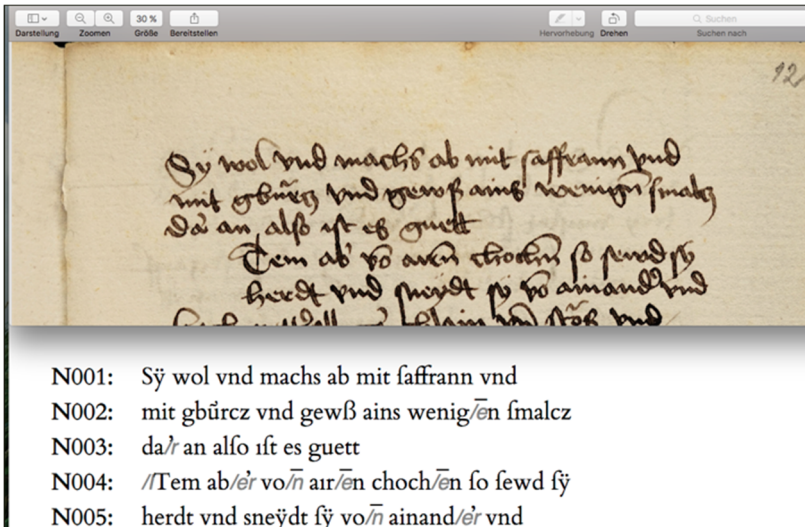 30 %
Darstellung Zoomen Größe Bereitstellen
Suchen
Hervorhebung Drehen Suchen nach
12
Sÿ wol vnd machs ab mit ſaffrann vnd
mit gbürcz vnd gewß ains wenign̄ ſmalcz
da᾿ an alſo iſt es guett
Tem ab᾿ vō air̄n chochn̄ ſo ſewd ſÿ
herdt vnd ſneÿdt ſÿ vō ainand᾿ vnd
N001: Sÿ wol vnd machs ab mit ſaffrann vnd
N002: mit gbűrcz vnd gewß ains wenig/e̅n ſmalcz
N003: da/r᾿ an alſo ıſt es guett
N004: /ITem ab/er᾿ vo/n̅ aır/e̅n choch/e̅n ſo ſewd ſÿ
N005: herdt vnd sneÿdt ſÿ vo/n̅ ainand/er᾿ vnd